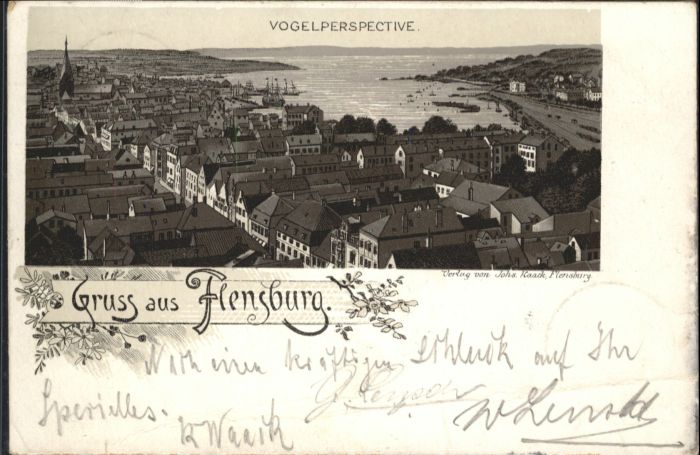 VOGELPERSPECTIVE.
Verlag von Johs. Kaack, Flensburg.
Gruss aus Flensburg.
Noch einen kräftigen Schluck auf Ihr
Spezielles.